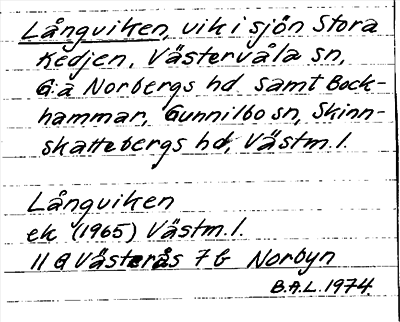 Långviken, vik i sjön Stora
Kedjen, Västervåla sn,
G:a Norbergs hd samt Bock-
hammar, Gunnilbo sn, Skinn-
skattebergs hd, Västm. l.
Långviken
ek (1965) Västm. l.
11 G Västerås 7 b Norbyn
B.A.L. 1974